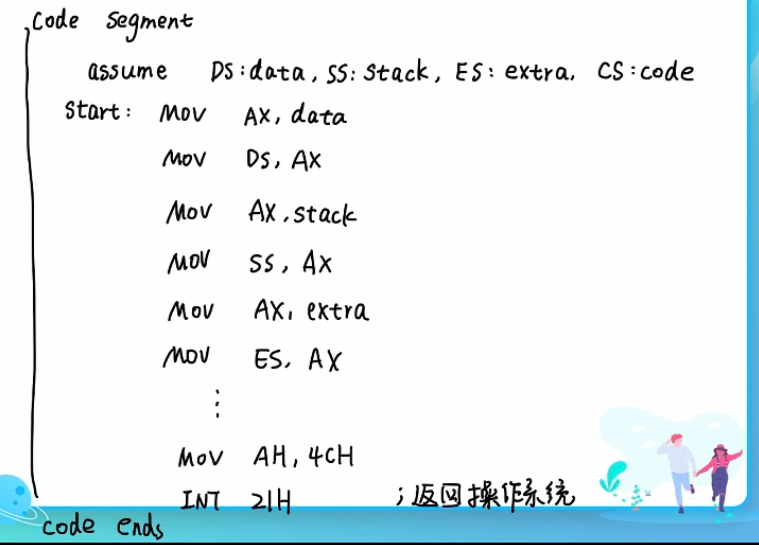 code segment
assume DS:data, SS:stack, ES:extra, CS:code
start: Mov AX, data
Mov DS, AX
Mov AX, stack
Mov SS, AX
Mov AX, extra
Mov ES, AX
⋮
Mov AH, 4CH
INT 21H ;返回操作系统
code ends